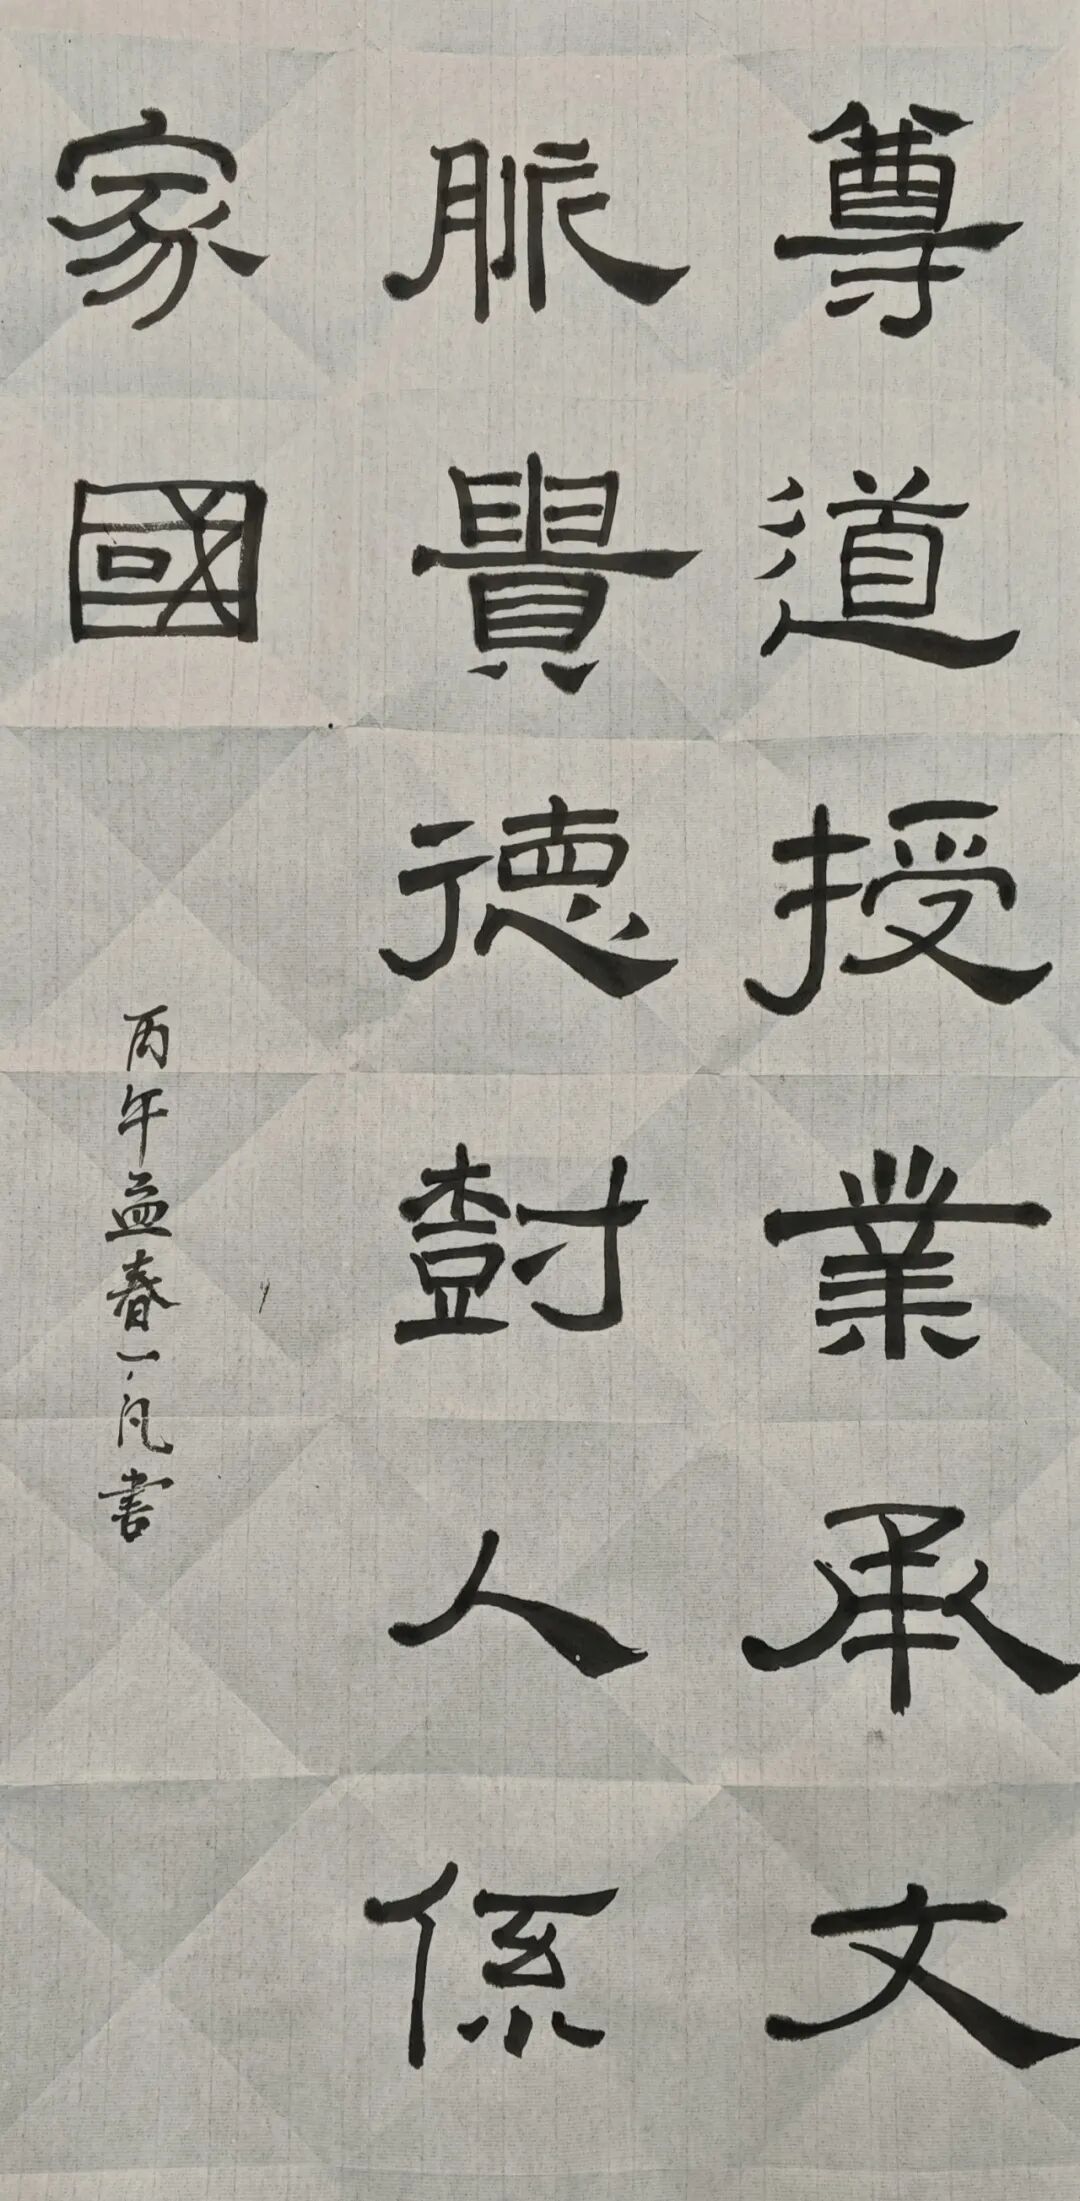 尊道授業承文
脈貴德樹人係
家國
丙午孟春一凡書